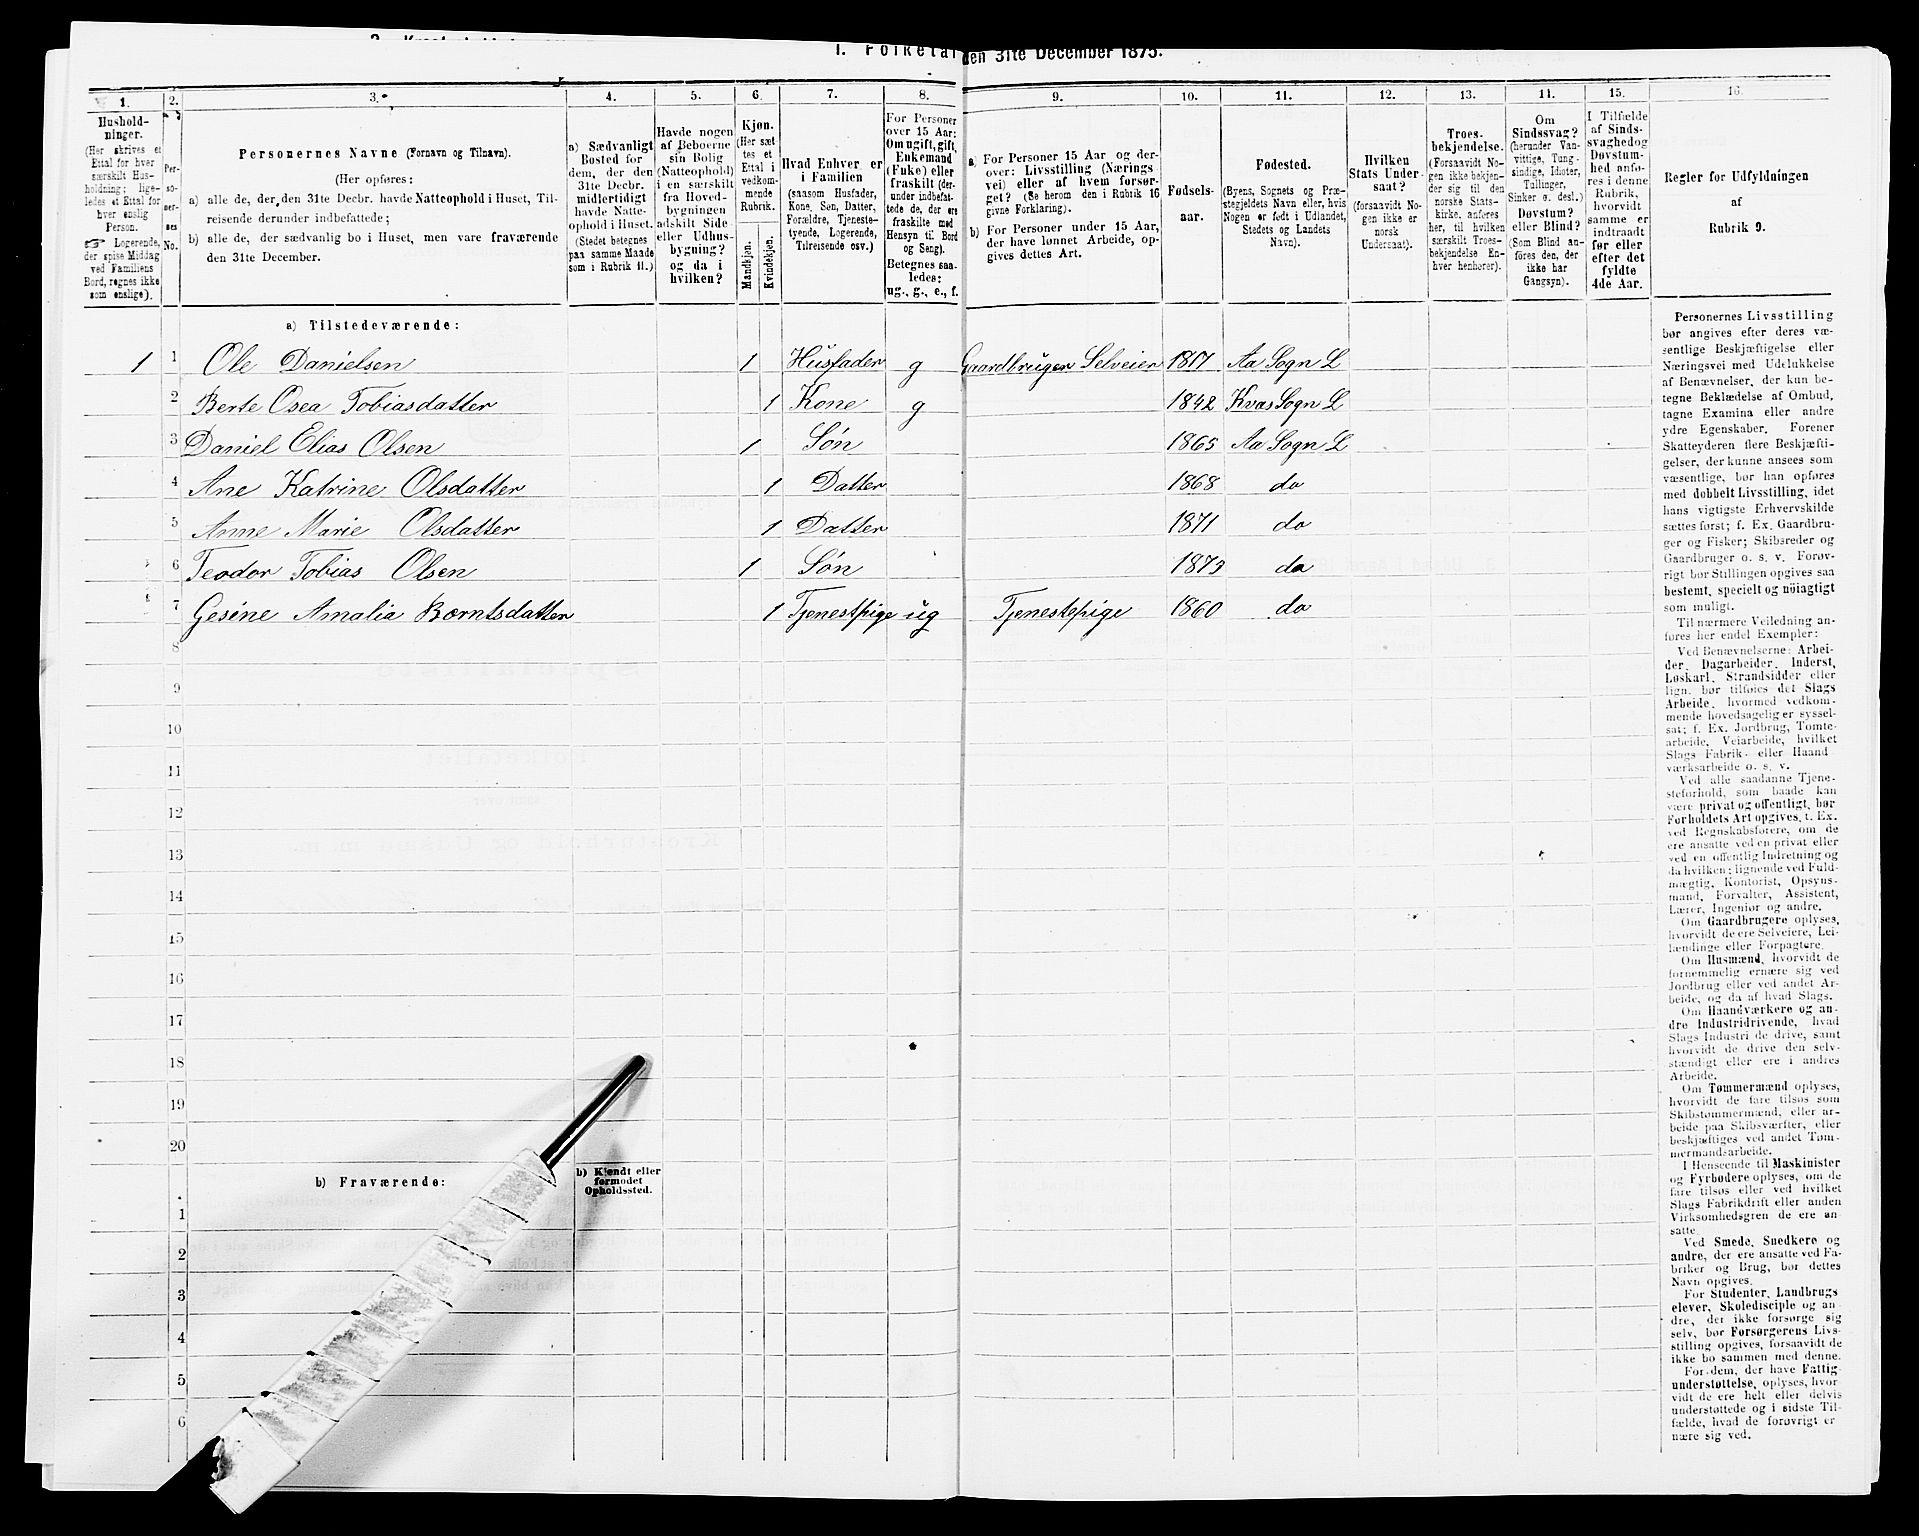 1. Folketal
den 31te December 1875.
1.
2.
3.
4.
5.
6.
7.
8.
9.
10.
11.
12.
13.
14.
15.
16.
Hushold-
ninger.
(Her skrives et
Ettal for hver
særskilt Hus-
holdning; lige-
ledes et Ettal for
hver enslig
Person.
☞ Logerende,
der spise Middag
ved Familiens
Bord, regnes ikke
som enslige).
Per-
so-
ner-
nes
No.
Personernes Navne (Fornavn og Tilnavn).
(Her opføres:
a) alle de, der den 31te Decbr. havde Natteophold i Huset, Til-
reisende derunder indbefattede;
b) alle de, der sædvanlig bo i Huset, men vare fraværende
den 31te December.
a) Sædvanligt
Bosted for
dem, der den
31te Decbr.
midlertidigt
havde Natte-
ophold i Huset.
(Stedet betegnes
paa samme Maade
som i Rubrik 11.)
Havde nogen
af Beboerne
sin Bolig
(Natteophold)
i en særskilt
fra Hoved-
bygningen
adskilt Side-
eller Udhus-
bygning?
og da i
hvilken?
Kjøn.
(Her sæt-
tes et
Ettal i
vedkom-
mende
Rubrik.
Mandkjøn.
Kvindekjøn.
Hvad Enhver er
i Familien
(saasom Husfader,
Kone, Søn, Datter,
Forældre, Tjeneste-
tyende, Logerende,
Tilreisende osv.)
For Personer
over 15 Aar:
Om ugift, gift,
Enkemand
(Enke) eller
fraskilt (der-
under indbefat-
tede de, der ere
fraskilte med
Hensyn til Bord
og Seng).
Betegnes saa-
ledes:
ug., g., e., f.
a) For Personer 15 Aar og der-
over: Livsstilling (Nærings
vei) eller af hvem forsør-
get? (Se herom den i Rubrik 16
givne Forklaring).
b) For Personer under 15 Aar,
der have lønnet Arbeide, op-
gives dettes Art.
Fødsels-
aar.
Fødested.
(Byens, Sognets og Præ-
stegjeldets Navn eller, hvis
Nogen er født i Udlandet,
Stedets og Landets
Navn).
Hvilken
Stats Under-
saat?
(forsaavidt No-
gen ikke er
norsk
Undersaat).
Troes-
bekjendelse.
(Forsaavidt No-
gen ikke bekjen-
der sig til den
norske Stats-
kirke, anføres
her, til hvilken
særskilt Troes-
bekjendelse En-
hver henhører).
Om
Sindssvag?
(herunder Van-
vittige, Tung-
sindige, Idioter,
Tullinger,
Sinker o. desl.)
Døvstum?
eller Blind?
(Som Blind an-
føres den, der
ikke har
Gangsyn).
I Tilfælde
af Sinds-
svaghed og
Døvstum-
hed anfø-
res i denne
Rubrik,
hvorvidt
samme er
indtraadt
før eller
efter det
fyldte
4de Aar.
Regler for Udfyldningen
af
Rubrik 9.
a) Tilstedeværende:
1 1 Ole Danielsen 1 Husfader g Gaardbruger Selveier 1817 Aa Sogn L
2 Berte Osea Tobiasdatter 1 Kone g 1842 Kvas Sogn L
3 Daniel Elias Olsen 1 Søn 1865 Aa Sogn L
4 Ane Katrine Olsdatter 1 Datter 1868 do
5 Anne Marie Olsdatter 1 Datter 1871 do
6 Teodor Tobias Olsen 1 Søn 1873 do
7 Gesine Amalia Borntsdatter 1 Tjenestpige ug Tjenestepige 1860 do
8
9
10
11
12
13
14
15
16
17
18
19
20
b) Fraværende:
b) Kjendt eller
formodet
Opholdssted.
1
2
3
4
5
6
Personernes Livsstilling
bør angives efter deres væ-
sentlige Beskjæftigelse eller
Næringsvei med Udelukkelse
af Benævnelser, der kun be-
tegne Beklædelse af Ombud,
tagne Examina eller andre
ydre Egenskaber. Forener
Skatteyderen flere Beskjæfti-
gelser, der kunne ansees som
væsentlige, bør han opføres
med dobbelt Livsstilling, idet
hans vigtigste Erhvervskilde
sættes først; f. Ex. Gaardbru-
ger og Fisker; Skibsreder og
Gaardbruger o. s. v. Forøv-
rigt bør Stillingen opgives saa
bestemt, specielt og nøiagtigt
som muligt.
Til nærmere Veiledning an-
føres her endel Exempler:
Ved Benævnelserne: Arbei-
der, Dagarbeider, Inderst,
Løskarl, Strandsidder eller
lign. bør tilføies det Slags
Arbeide, hvormed vedkom-
mende hovedsagelig er syssel-
sat; f. Ex. Jordbrug, Tomte-
arbeide, Veiarbeide, hvilket
Slags Fabrik- eller Haand-
værksarbeide o. s. v.
Ved alle saadanne Tjene-
steforhold, som baade kan
være privat og offentligt, bør
Forholdets Art opgives, f. Ex.
ved Regnskabsførere, om de
ere ansatte ved en privat eller
ved en offentlig Indretning og
da hvilken; lignende ved Fuld-
mægtig, Kontorist, Opsyns-
mand, Forvalter, Assistent,
Lærer, Ingeniør og andre.
Om Gaardbrugere oplyses,
hvorvidt de ere Selveiere, Lei-
lændinge eller Forpagtere.
Om Husmænd, hvorvidt de
fornemmelig ernære sig ved
Jordbrug eller ved andet Ar-
beide, og da af hvad Slags.
Om Haandværkere og an-
dre Industridrivende, hvad
Slags Industri de drive, samt
hvorvidt de drive den selv-
stændigt eller ere i andres
Arbeide.
Om Tømmermænd oplyses,
hvorvidt de fare tilsøs som
Skibstømmermænd, eller ar-
beide paa Skibsværfter, eller
beskjæftiges ved andet Tøm-
mermandsarbeide.
I Henseende til Maskinister
og Fyrbødere oplyses, om de
fare tilsøs eller ved hvilket
Slags Fabrikdrift eller anden
Virksomhedsgren de ere an-
satte.
Ved Smede, Snedkere og
andre, der ere ansatte ved Fa-
briker og Brug, bør dettes
Navn opgives.
For Studenter, Landbrugs
elever, Skoledisciple og an-
dre, der ikke forsørge sig
selv, bør Forsørgerens Livs-
stilling opgives, forsaavidt de
ikke bo sammen med denne.
For dem, der have Fattig-
understøttelse, oplyses, hvor
vidt de ere helt eller delvis
understøttede og i sidste Til-
fælde, hvad de forøvrigt er
nære sig ved.